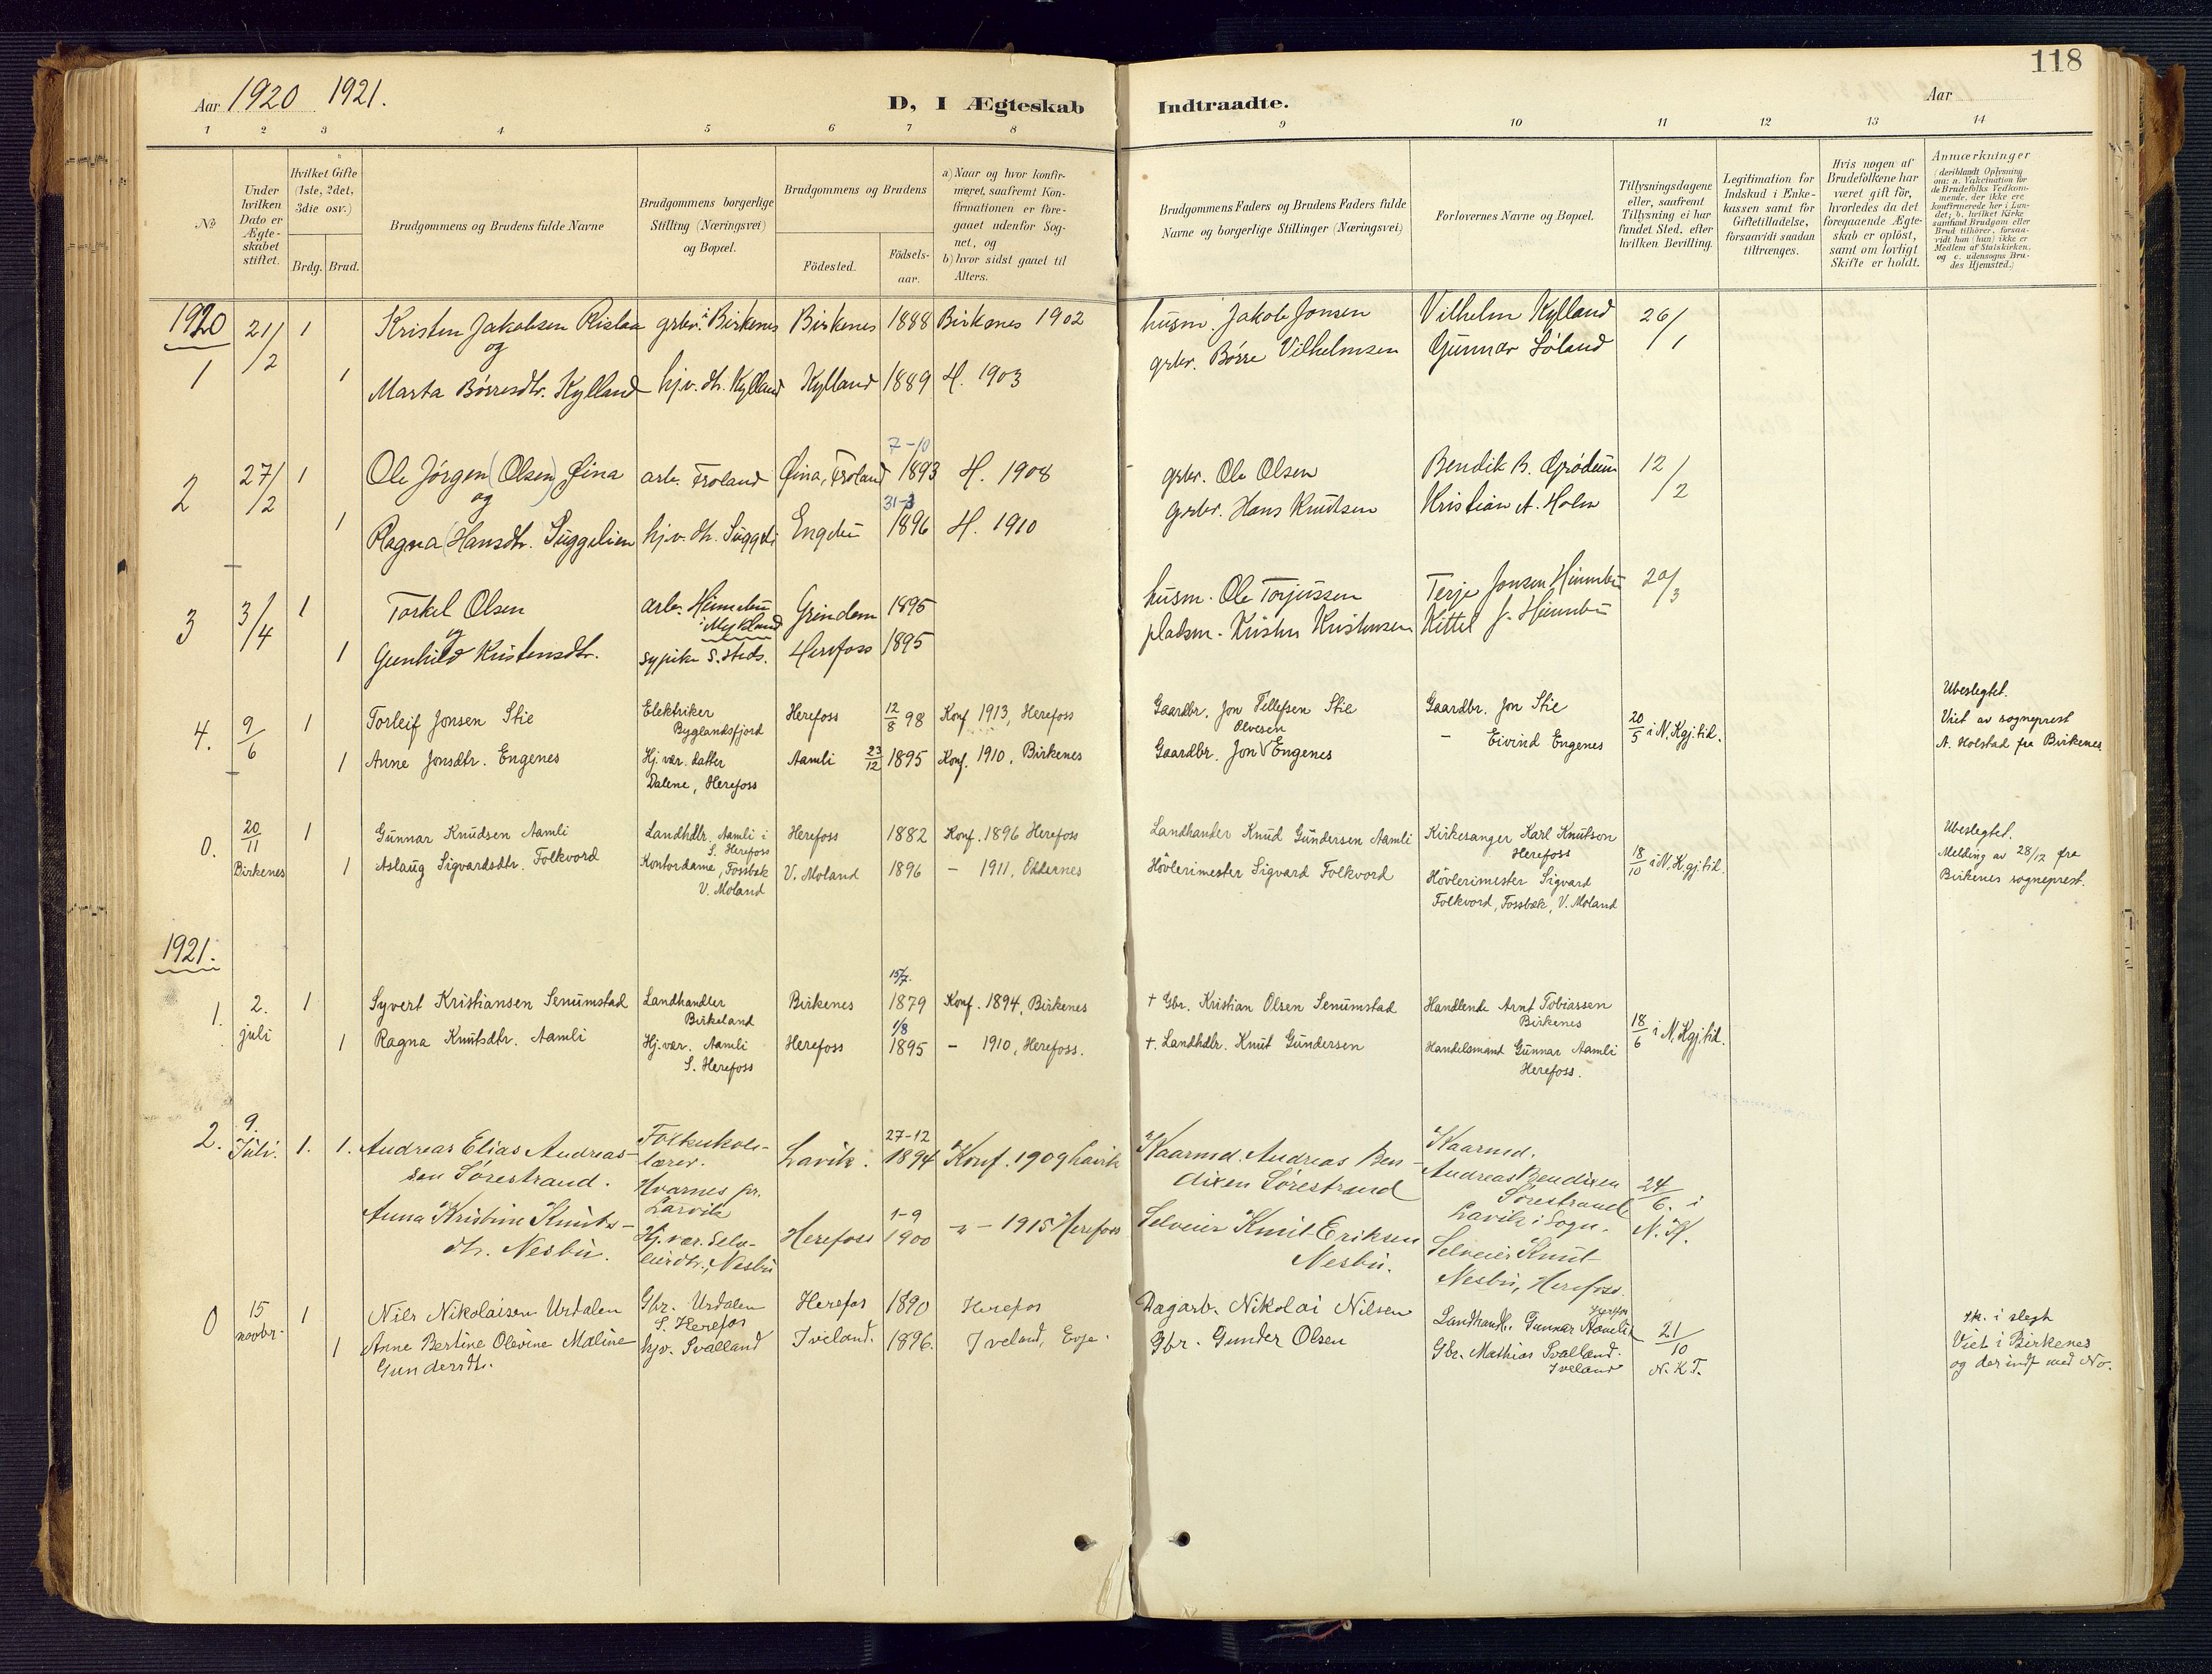 118
Aar 1920 1921.
D, I Ægteskab Indtraadte.
Aar
1 2 3 4 5 6 7 8 9 10 11 12 13 14
No
Under hvilken Dato er Ægteskabet stiftet.
Hvilket Gifte (1ste, 2det, 3die osv.)
Brdg. Brud.
Brudgommens og Brudens fulde Navne
Brudgommens borgerlige Stilling (Næringsvei) og Bopæl.
Brudgommens og Brudens
Födested.
Födsels-aar.
a) Naar og hvor konfir-
meret, saafremt Kon-
firmationen er fore-
gaaet udenfor Sog-
net, og
b) hvor sidst gaaet til
Alters.
Brudgommens Faders og Brudens Faders fulde
Navne og borgerlige Stillinger (Næringsvei)
Forlovernes Navne og Bopæl.
Tillysningsdagene
eller, saafremt
Tillysning ei har
fundet Sted, efter
hvilken Bevilling.
Legitimation for
Indskud i Enke-
kassen samt for
Giftetilladelse,
forsaavidt saadan
tiltrænges.
Hvis nogen af
Brudefolkene har
været gift för,
hvorledes da det
foregaaende Ægte-
skab er oplöst,
samt om lovligt
Skifte er holdt.
Anmærkninger
(deriblandt Oplysning
om: a. Vakcination for
de Brudefolks Vedkom-
mende, der ikke ere
konfirmerede her i Lan-
det; b. hvilket Kirke-
samfund Brudgom eller
Brud tilhörer, forsaa-
vidt han (hun) ikke er
Medlem af Statskirken,
og c. udensogns Bru-
des Hjemsted.)
1920
1 21/2 1 Kristen Jakobsen Rislaa grbr. i Birkenes Birkenes 1888 Birkenes 1902 husm. Jakob Jonsen Vilhelm Kylland 26/1
og
1 Marta Börresdtr. Kylland hjv. dtr. Kylland Kylland 1889 H. 1903 grbr. Börre Vilhelmsen Gunnar Söland
2 27/2 1 Ole Jörgen (Olsen) Öina arb. Froland Öina, Froland 7-10 1893 H. 1908 grbr. Ole Olsen Bendik B. Grödum 12/2
og
1 Ragna (Hansdtr. Suggelien hjv. dtr. Suggeli Engebu 31-3 1896 H. 1910 grbr. Hans Knudsen Kristian A. Holm
3 3/4 1 Torkel Olsen arb. Heimebu i Mykland Grindem 1895 husm. Ole Torjussen Terje Jonsen Himebu 20/3
og
1 Gunhild Kristensdtr. sypike s. steds. Herefoss 1895 pladsm. Kristen Kristensen Kittel J. Himebu
4. 9/6 1 Torleif Jonsen Stie Elektriker Byglandsfjord Herefoss 12/8 98 Konf 1913, Herefoss Gaardbr. Jon Tellefsen Stie Gaardbr. Jon Stie 20/5 i N. Kgj. tid.
1 Anne Jonsdtr. Engenes Hj. vær. datter Dalene, Herefoss Aamli 23/12 1895 Konf. 1910, Birkenes Gaardbr. Jon Olvesen Engenes – Eivind Engenes
Ubeslegtet.
Viet av sogneprest
A. Holstad fra Birkenes
0. 20/11 Birkenes 1 Gunnar Knudsen Aamli Landhdlr. Aamli i S. Herefoss Herefoss 1882 Konf. 1896 Herefoss Landhandler Knud Gundersen Aamli Kirkesanger Karl Knutson Herefoss 18/10 i N. K. gj. tid.
1 Aslaug Sigvardsdtr. Folkvord Kontordame, Fossbæk V. Moland V. Moland 1896 – 1911, Oddernes Hövlerimester Sigvard Folkvord Hövlerimester Sigvard Folkvord, Fossbæk, V. Moland
Ubeslegtet.
Melding av 28/12 fra
Birkenes sogneprest.
1921.
1. 2. juli 1 Syvert Kristiansen Senumstad Landhandler Birkeland Birkenes 15/7. 1879 Konf. 1894, Birkenes + Gbr. Kristian Olsen Senumstad Handlende Arnt Tobiassen Birkenes 18/6 i N. Kgj. tid.
1 Ragna Knutsdtr. Aamli Hj. vær. Aamli S. Herefoss Herefoss 1/8 1895 – 1910, Herefoss. +. Landhdlr. Knut Gundersen Handelsmand Gunnar Aamli Herefoss.
2. 9. Juli. 1. 1. Andreas Elias Andreas-
sen Sörestrand. Folkeskole-
lærer. Hvarnes pr. Larvik Lavik. 27-12 1894 Konf. 1909 Lavik Kaarmd. Andreas Ben-
dixen Sörestrand Kaarmd. Andreas Bendixen Sörestrand Lavik i Sogn. 24/6. i N. K.
Anna Kristine Knuts-
dtr. Nesbu. Hj. vær. Selv-
eierdtr., Nesbu Herefoss 1-9 1900 -"- 1915 Herefoss Selveier Knut Eriksen Nesbu. Selveier Knut Nesbu, Herefoss.
0 15 novbr. 1 Nils Nikolaisen Urdalen Gbr. Urdalen S. Herefos Herefos 1890 Herefos Dagarb. Nikolai Nilsen Landhandl. Gunnar Aamli Herefos 21/10 N. K. T.
1 Anne Bertine Olevine Maline Gundersdtr. hjv. Svalland Iveland. 1896. Iveland, Evje. Gbr. Gunder Olsen Gbr. Mathias Svalland. Iveland
ik. i slegt
Viet i Birkenes
og der indf med No.